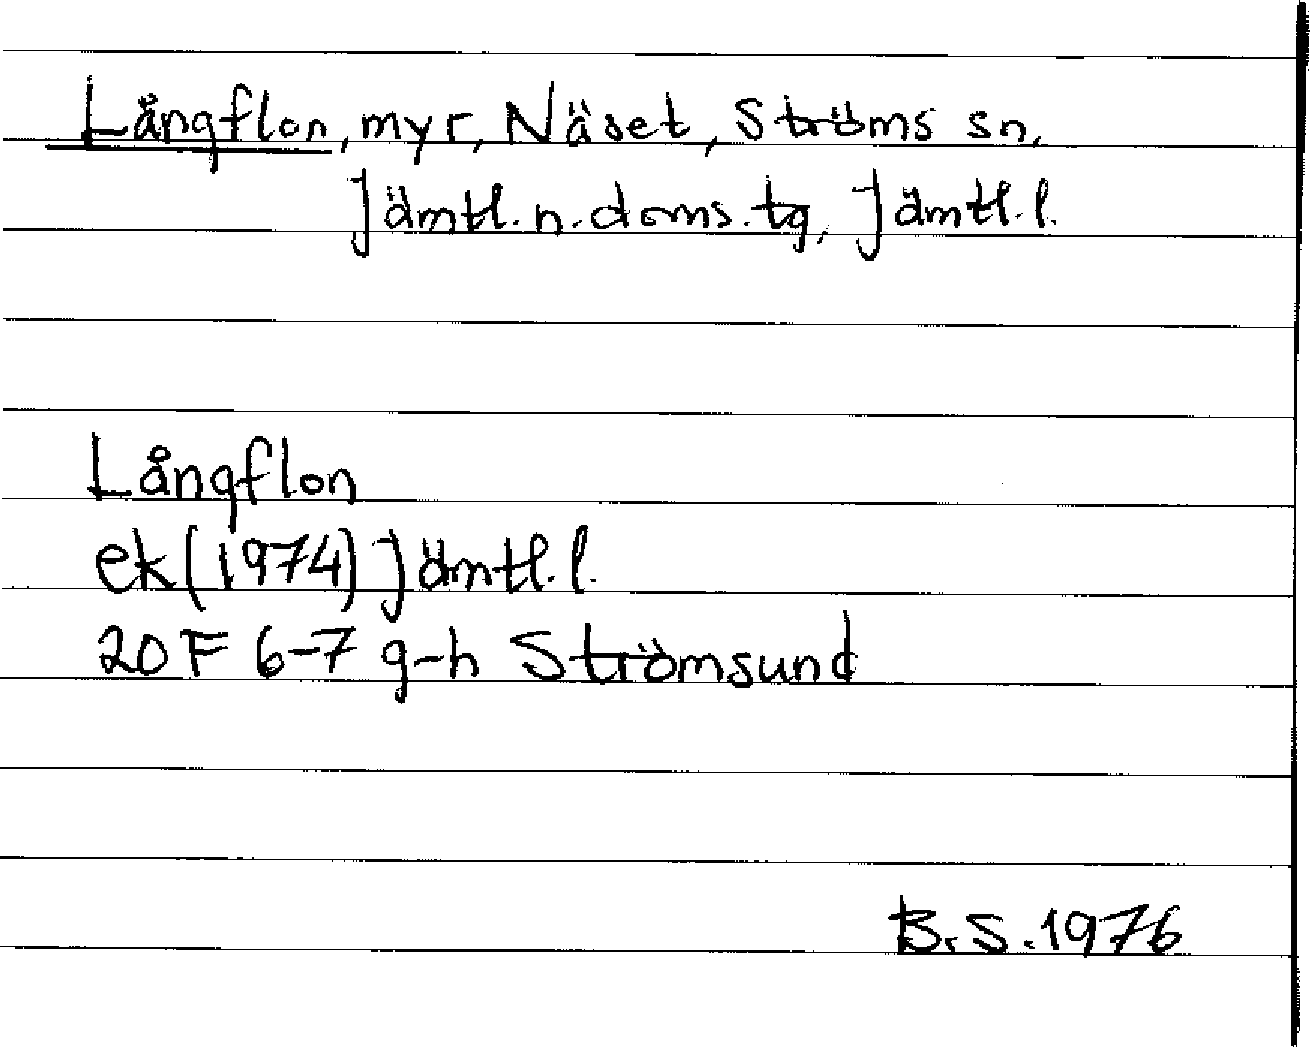 Långflon, myr, Näset, Ströms sn,
Jämtl.n.doms.tg, Jämtl.l.
Långflon
ek(1974) Jämtl.l.
20F 6-7 g-h Strömsund
B.S.1976